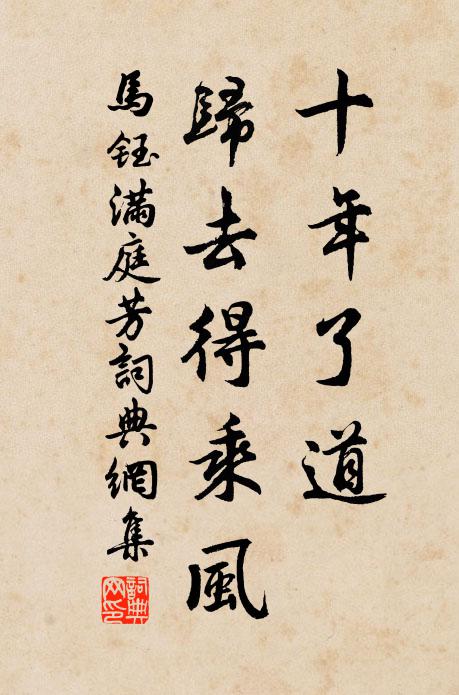 十年了道
歸去得乘風
馬鈺滿庭芳詞典網集
詞典网印